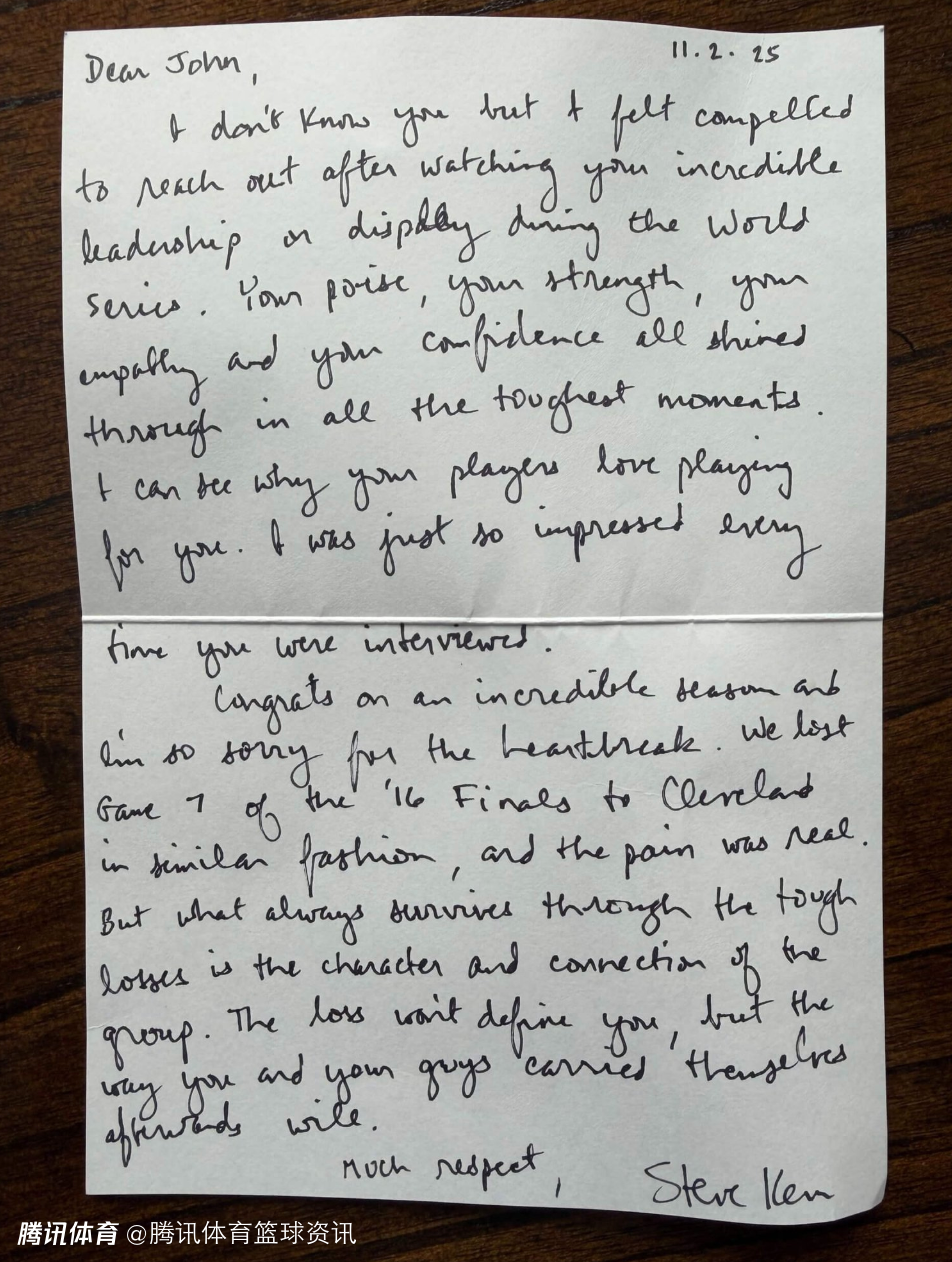 11.2.25
Dear John,
I don't know you but I felt compelled
to reach out after watching your incredible
leadership on display during the World
Series. Your poise, your strength, your
empathy and your confidence all shined
through in all the toughest moments.
I can see why your players love playing
for you. I was just so impressed every
time you were interviewed.
Congrats on an incredible season and
I'm so sorry for the heartbreak. We lost
Game 7 of the '16 Finals to Cleveland
in similar fashion, and the pain was real.
But what always survives through the tough
losses is the character and connection of the
group. The loss won't define you, but the
way you and your guys carried themselves
afterwards will.
Much respect,
Steve Kerr
腾讯体育 @腾讯体育篮球资讯